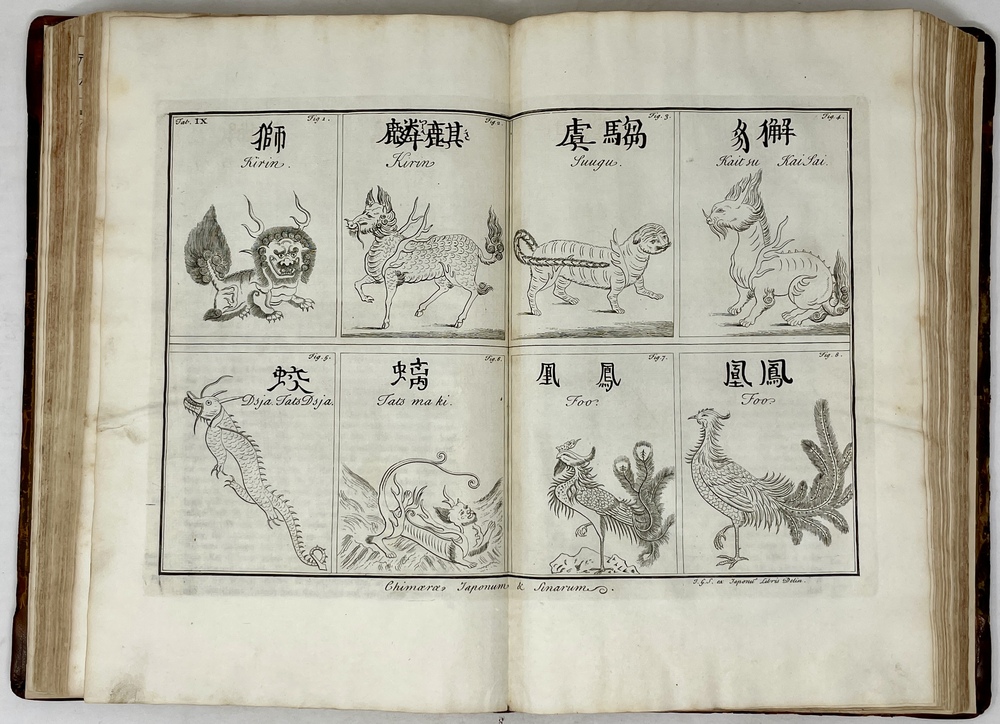 Tab. IX
Fig 1.
獅
Kirin.
Fig 2
麟麒
Kirin
Fig. 3.
虞騶
Suugu.
Fig. 4.
豸獬
Kaitsu KaiSai.
Fig. 5.
蛟
Dsja. TatsDsja.
Fig. 6.
螭
Tats maki.
Fig. 7.
凰 鳳
Foo
Fig. 8.
凰鳳
Foo
Chimæræ Japonum & Sinarum.
I.G.S. ex Japonu Libris Delin.